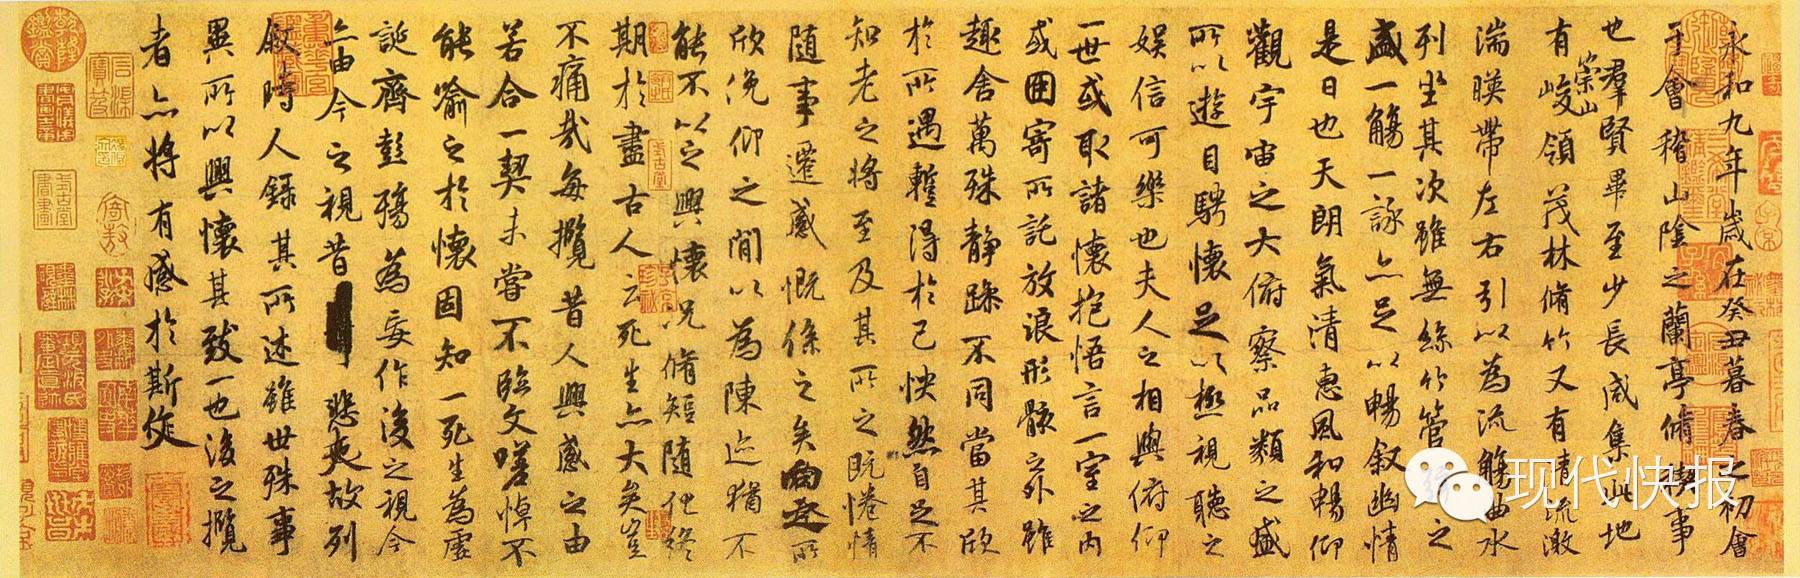 永和九年歲在癸丑暮春之初會
于會稽山陰之蘭亭脩禊事
也羣賢畢至少長咸集此地
有崇山峻領茂林脩竹又有清流激
湍暎帶左右引以為流觴曲水
列坐其次雖無絲竹管弦之
盛一觴一詠亦足以暢敘幽情
是日也天朗氣清惠風和暢仰
觀宇宙之大俯察品類之盛
所以遊目騁懷足以極視聽之
娛信可樂也夫人之相與俯仰
一世或取諸懷抱悟言一室之內
或因寄所託放浪形骸之外雖
趣舍萬殊靜躁不同當其欣
於所遇暫得於己怏然自足不
知老之將至及其所之既惓情
隨事遷感慨係之矣向之所
欣俛仰之間以為陳迹猶不
能不以之興懷況脩短隨化終
期於盡古人云死生亦大矣豈
不痛哉每攬昔人興感之由
若合一契未嘗不臨文嗟悼不
能喻之於懷固知一死生為虛
誕齊彭殤為妄作後之視今
亦由今之視昔悲夫故列
敘時人錄其所述雖世殊事
異所以興懷其致一也後之攬
者亦將有感於斯文
现代快报